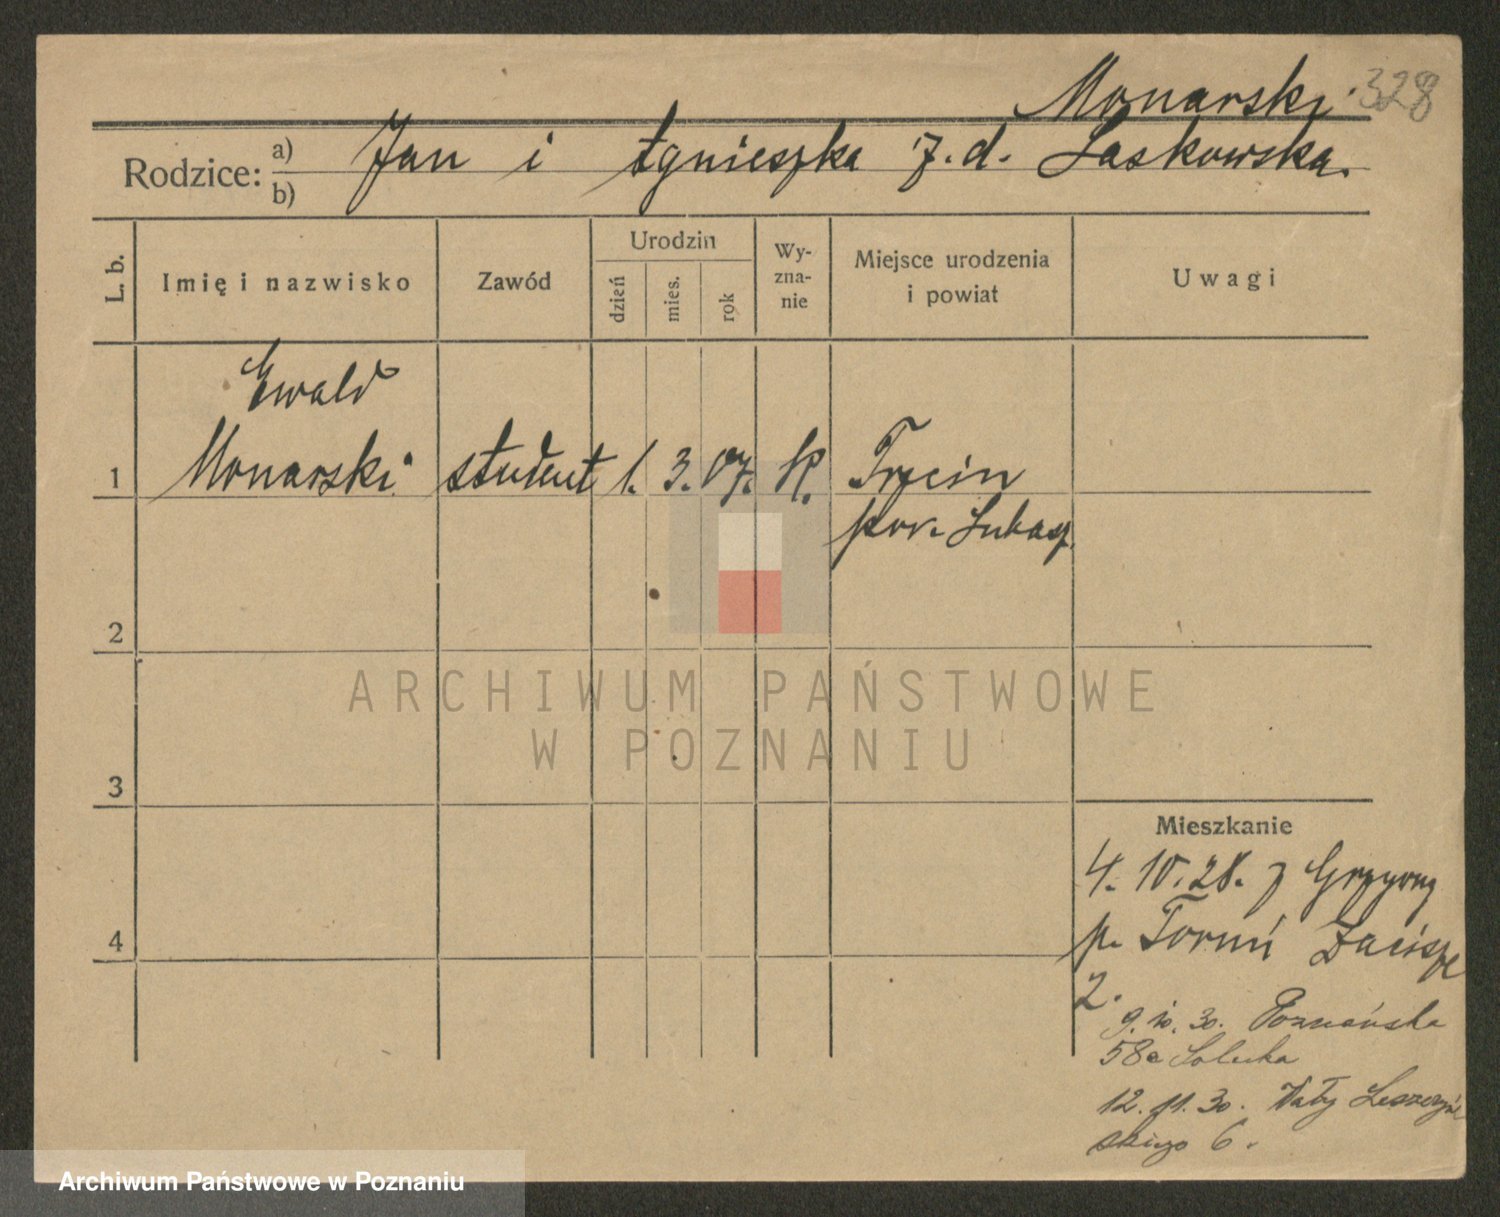 Monarski. 328
Rodzice: a) b) Jan i Agnieszka z. d. Laskowska.
L. b. Imię i nazwisko Zawód Urodzin dzień mies. rok Wyznanie Miejsce urodzenia i powiat Uwagi
Ewald
1 Monarski student 1. 3. 07. K. Trzcin
pow. Lubasz.
2
ARCHIWUM PAŃSTWOWE
W POZNANIU
3
Mieszkanie
4. 10. 28. z Grzywny
4 p. Toruń Zacisze
2.
9. 10. 30. Poznańska
58a Solecka
12. 11. 30. Wały Leszczyń
skiego 6.
Archiwum Państwowe w Poznaniu